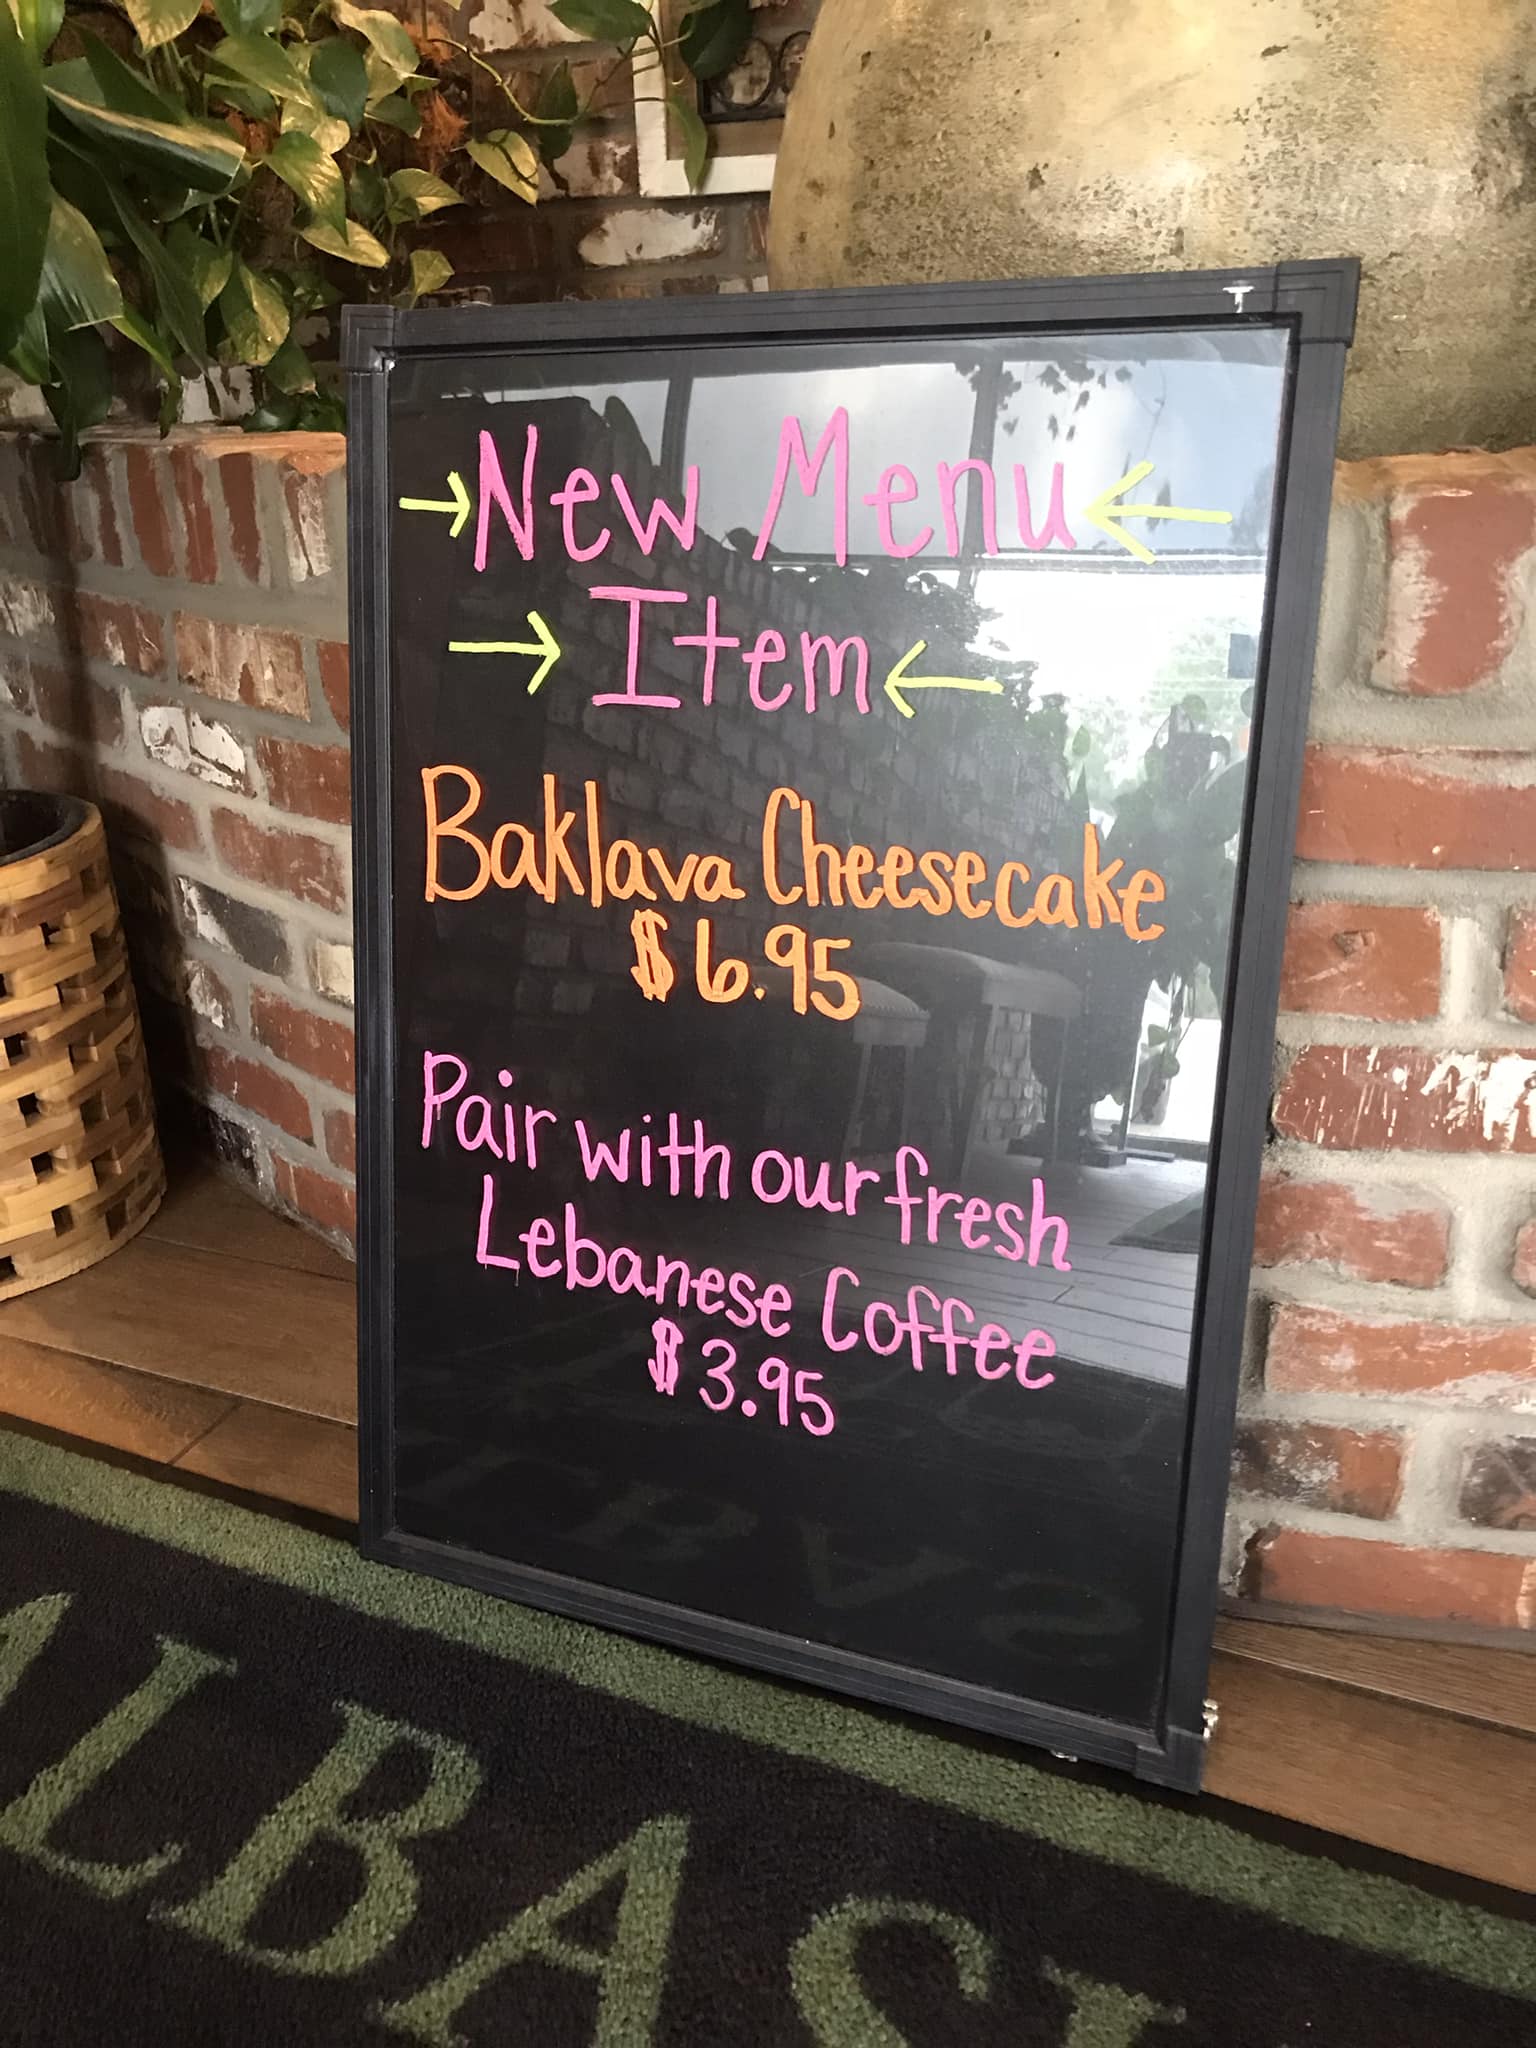 → New Menu ←
→ Item ←
Baklava Cheesecake
$6.95
Pair with our fresh
Lebanese Coffee
$3.95
ALBAS